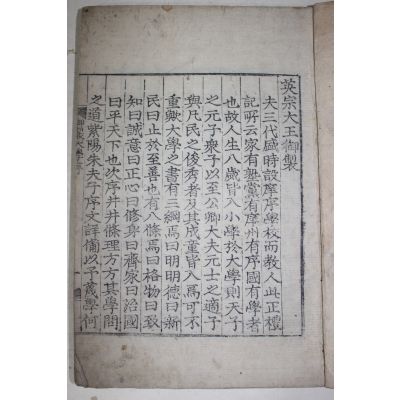 英宗大王御製
夫三代盛時設庠序學校而教人此正禮
記所云家有塾黨有庠州有序國有學者
也故人生八歲皆入小學於大學則天子
之元子衆子以至公卿大夫元士之適子
與凡民之俊秀者及其成童皆入焉可不
重歟大學之書有三綱焉曰明明德曰新
民曰止於至善也有八條焉曰格物曰致
知曰誠意曰正心曰修身曰齊家曰治國
曰平天下也次序井井條理方方其學問
之道紫陽朱夫子序文詳備以予蔑學何